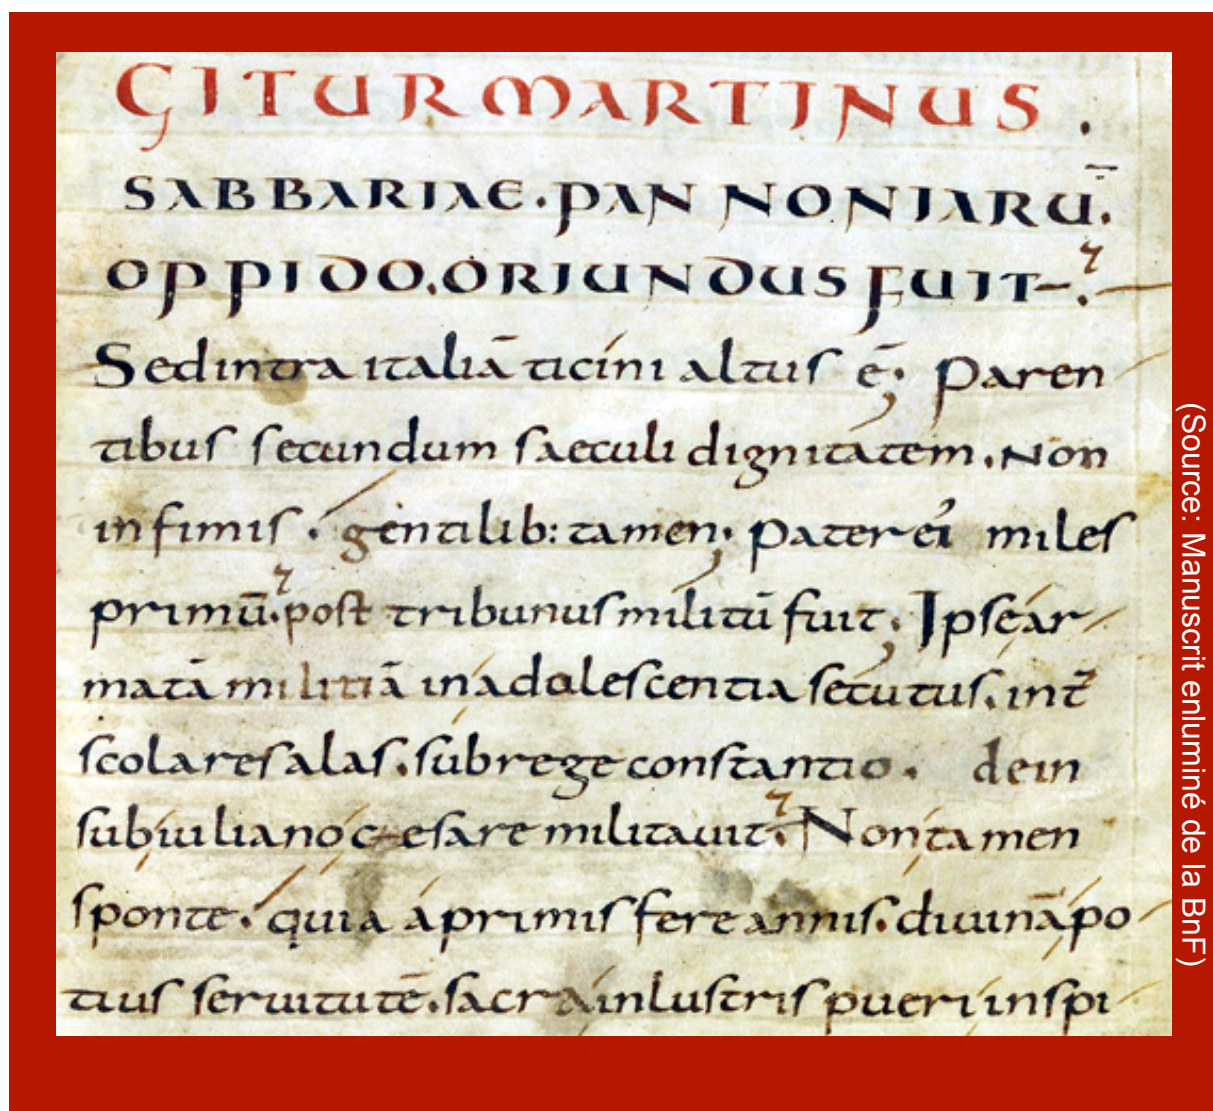 GITUR MARTINUS.
SABBARIAE. PANNONIARU̅.
OPPIDO. ORIUNDUS FUIT.
Sed intra italiā ticini altus ē; Paren
tibus secundum saeculi dignitatem. Non
infimis. gentilib: tamen; Pater ei miles
primū. post tribunus militū fuit; Ipse ar
matā militiā in adolescentia secutus. int̄
scolares alas. sub rege constantio. dein
sub iuliano cęsare militauit. Non tamen
sponte. quia a primis fere annis. diuinā po
tius seruitutē. sacra inlustris pueri inspi
(Source: Manuscrit enluminé de la BnF)